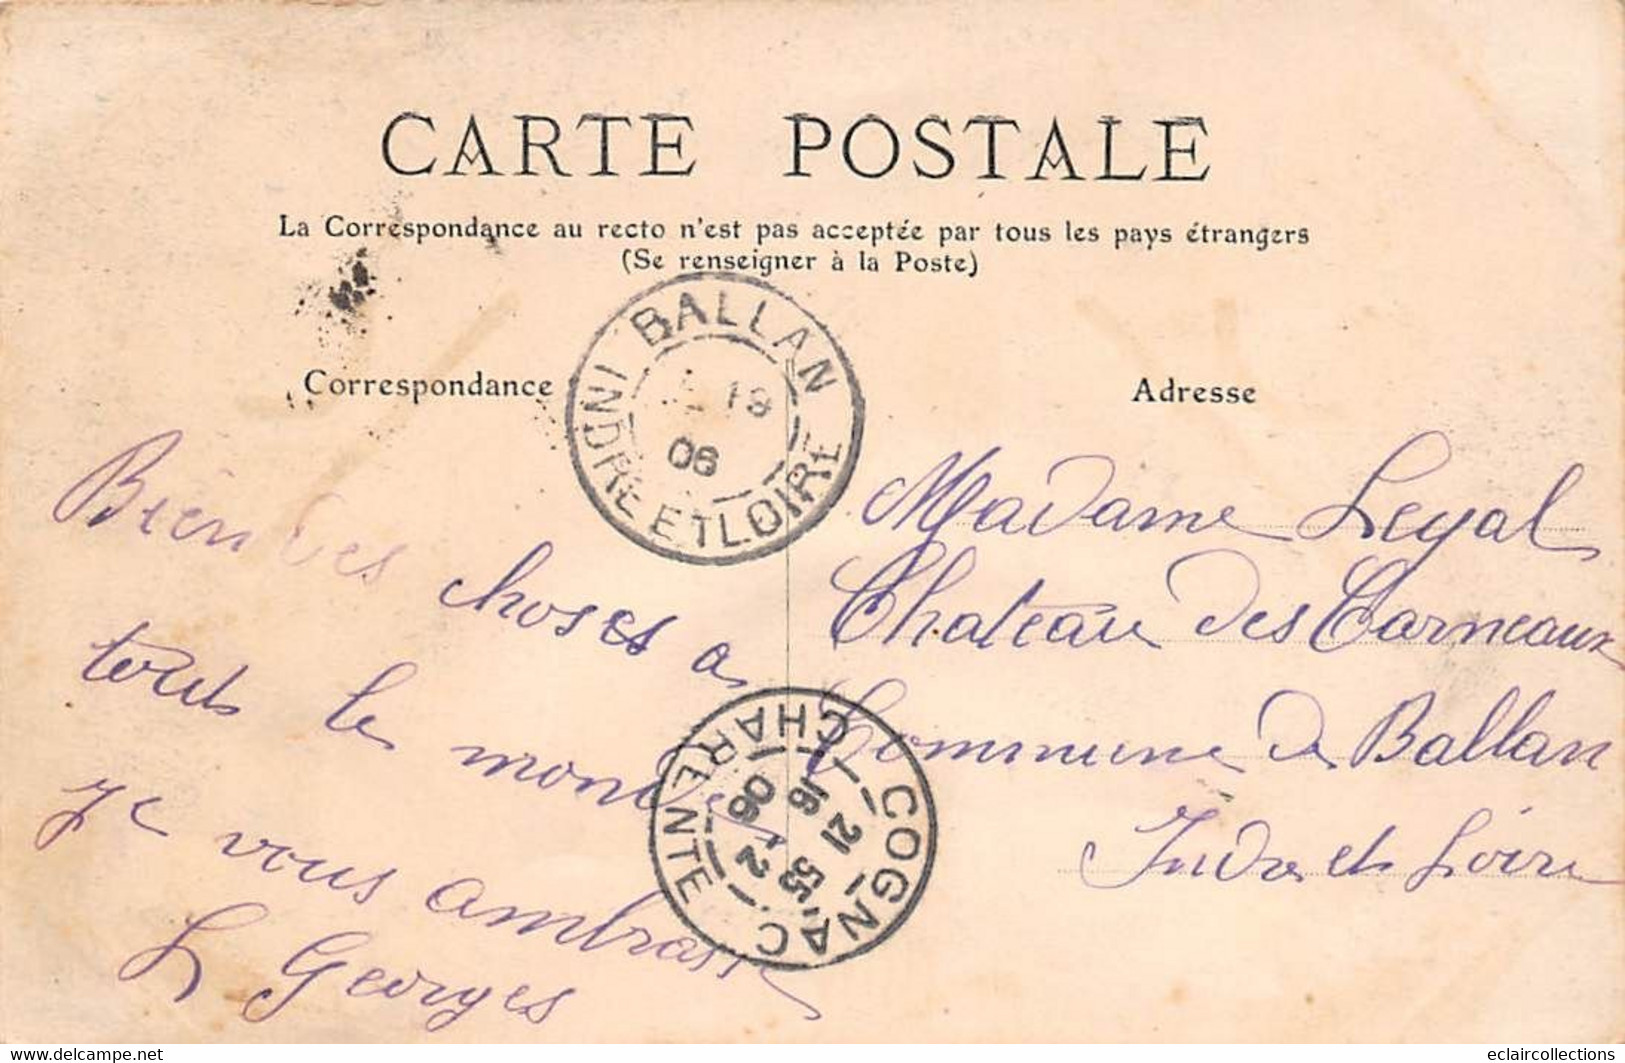 CARTE POSTALE
La Correspondance au recto n'est pas acceptée par tous les pays étrangers
(Se renseigner à la Poste)
Correspondance
Adresse
BALLAN
INDRE ET LOIRE
06
Bien des choses a
tous le monde
Je vous ambrasse
L Georges
Madame Legal
Chateau des Carneaux
Commune de Ballan
Indre et Loire
COGNAC
CHARENTE
16
21 55
2
06
www.delcampe.net
eclaircollections